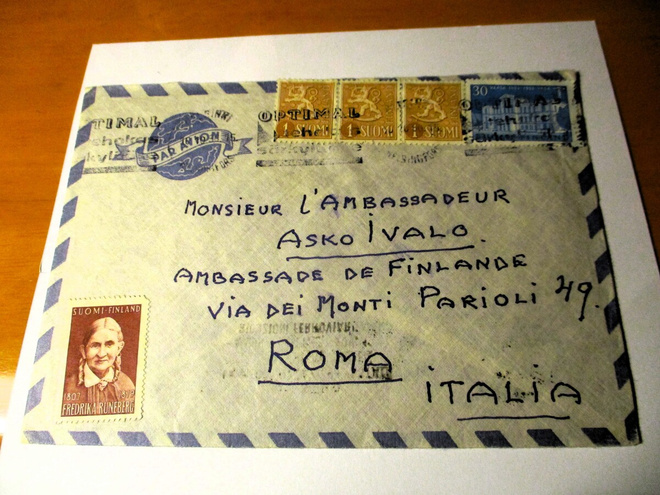 1 SUOMI
1 SUOMI
1 SUOMI
30
TIMAL
OPTIMAL
PAR AVION
MONSIEUR L'AMBASSADEUR
ASKO IVALO.
AMBASSADE DE FINLANDE
VIA DEI MONTI PARIOLI 49.
ROMA
ITALIA
SUOMI-FINLAND
1807
FREDRIKA RUNEBERG